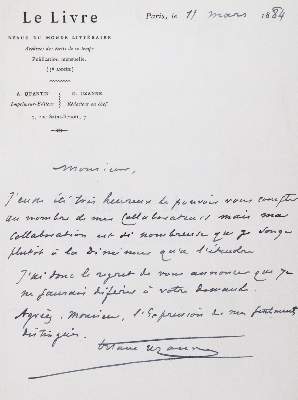 Le Livre
REVUE DU MONDE LITTÉRAIRE
Archives des Écrits de ce temps
Publication mensuelle.
A. QUANTIN
Imprimeur-Éditeur
O. UZANNE
Rédacteur en chef
7, rue Saint-Benoît, 7
Paris, le 11 mars 1884
Monsieur,
J'eusse été très heureux de pouvoir vous compter
au nombre de mes collaborateurs mais ma
collaboration est si nombreuse que je songe
plutôt à la diminuer qu'à l'étendre
J'ai donc le regret de vous annoncer que je
ne saurais déférer à votre demande.
Agréez, Monsieur, l'Expression de mes sentiments
distingués.
Octave Uzanne